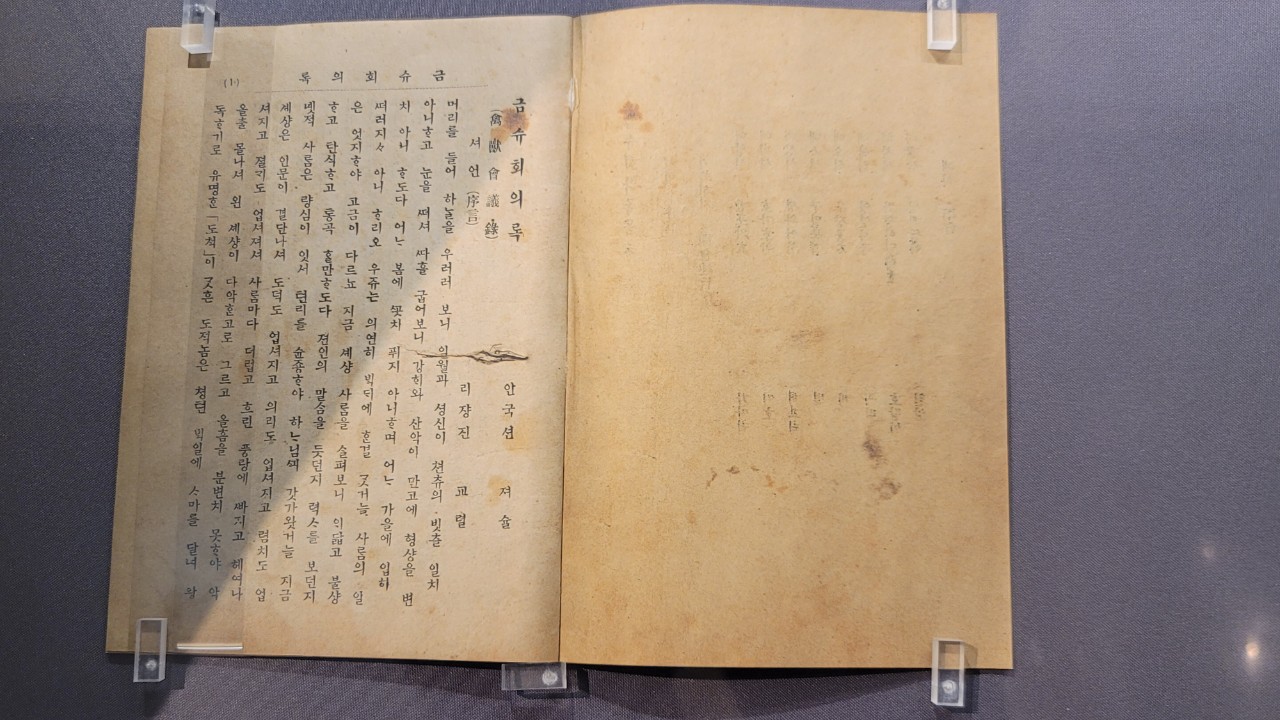 금슈회의록 (1)
금슈회의록
(禽獸會議錄)
안국션 져슐
셔언(序言)
리쟝진 교렬
머리를 들어 하ᄂᆞᆯ을 우러러 보니 일월과 셩신이 쳔츄의 빗츨 일치
아니ᄒᆞ고 눈을 ᄯᅥ셔 ᄯᅡ흘 굽어보니 강ᄒᆡ와 산악이 만고에 형샹을 변
치 아니 ᄒᆞ도다 어ᄂᆞ 봄에 ᄭᅩᆺ치 퓌지 아니ᄒᆞ며 어ᄂᆞ 가을에 입히
ᄯᅥ러지ᄉ 아니 ᄒᆞ리오 우쥬는 의연히 ᄇᆡᆨᄃᆡ에 ᄒᆞᆫ걸 ᄀᆞᆺ거늘 사ᄅᆞᆷ의 일
은 엇지ᄒᆞ야 고금이 다르뇨 지금 셰샹 사ᄅᆞᆷ을 ᄉᆞᆯ펴보니 ᄋᆡ닯고 불샹
ᄒᆞ고 탄식ᄒᆞ고 통곡 ᄒᆞᆯ만ᄒᆞ도다 젼인의 말ᄉᆞᆷ을 듯던지 력ᄉᆞ를 보던지
녯적 사ᄅᆞᆷ은 량심이 잇서 텬리를 슌죵ᄒᆞ야 하ᄂᆞ님ᄭᅴ 갓가왓거늘 지금
셰샹은 인문이 결단나셔 도덕도 업셔지고 의리도 업셔지고 렴치도 업
셔지고 졀ᄀᆡ도 업셔져셔 사ᄅᆞᆷ마다 더럽고 흐린 풍랑에 ᄲᅡ지고 헤여나
올줄 몰나셔 왼 셰샹이 다악ᄒᆞᆫ고로 그르고 올흠을 분변치 못ᄒᆞ야 악
독ᄒᆞ기로 유명ᄒᆞᆫ「도척」이 ᄀᆞᆺ흔 도적놈은 쳥텬 ᄇᆡᆨ일에 ᄉᆞ마를 달녀 왕